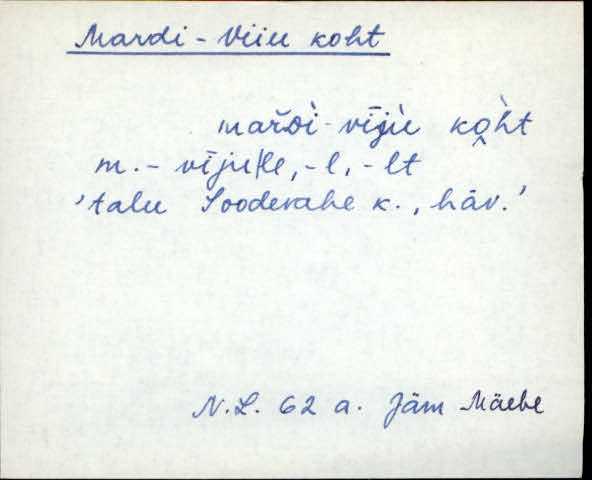 Mardi-Viiu koht
maŕδ̀i-vījùe ko̭h̀t
m.-vījue/le, -l, -lt
'talu Soodevahe k., häv.'
N.L. 62 a. Jäm Mäebe